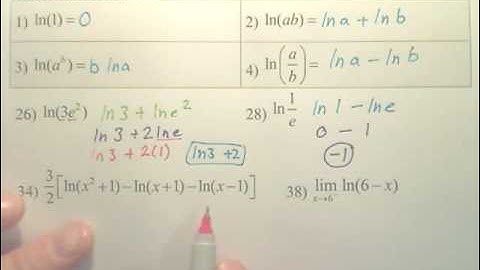 1) ln(1) = 0
2) ln(ab) = ln a + ln b
3) ln(aᵇ) = b ln a
4) ln(a/b) = ln a − ln b
26) ln(3e²) ln 3 + ln e²
ln 3 + 2 ln e
ln 3 + 2(1) ln 3 + 2
28) ln 1/e ln 1 − ln e
0 − 1
−1
34) 3/2 [ln(x² + 1) − ln(x + 1) − ln(x − 1)]
38) lim x→6⁻ ln(6 − x)